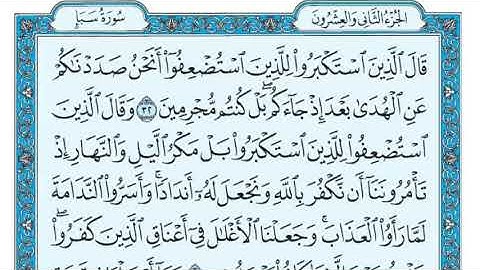 سُورَةُ سَبَإٍ
الجُزْءُ الثَّانِي وَالعِشْرُونَ
قَالَ ٱلَّذِينَ ٱسْتَكْبَرُوا۟ لِلَّذِينَ ٱسْتُضْعِفُوٓا۟ أَنَحْنُ صَدَدْنَٰكُمْ
عَنِ ٱلْهُدَىٰ بَعْدَ إِذْ جَآءَكُم ۖ بَلْ كُنتُم مُّجْرِمِينَ ٣٢ وَقَالَ ٱلَّذِينَ
ٱسْتُضْعِفُوا۟ لِلَّذِينَ ٱسْتَكْبَرُوا۟ بَلْ مَكْرُ ٱلَّيْلِ وَٱلنَّهَارِ إِذْ
تَأْمُرُونَنَآ أَن نَّكْفُرَ بِٱللَّهِ وَنَجْعَلَ لَهُۥٓ أَندَادًا ۚ وَأَسَرُّوا۟ ٱلنَّدَامَةَ
لَمَّا رَأَوُا۟ ٱلْعَذَابَ ۚ وَجَعَلْنَا ٱلْأَغْلَٰلَ فِىٓ أَعْنَاقِ ٱلَّذِينَ كَفَرُوا۟ ۖ